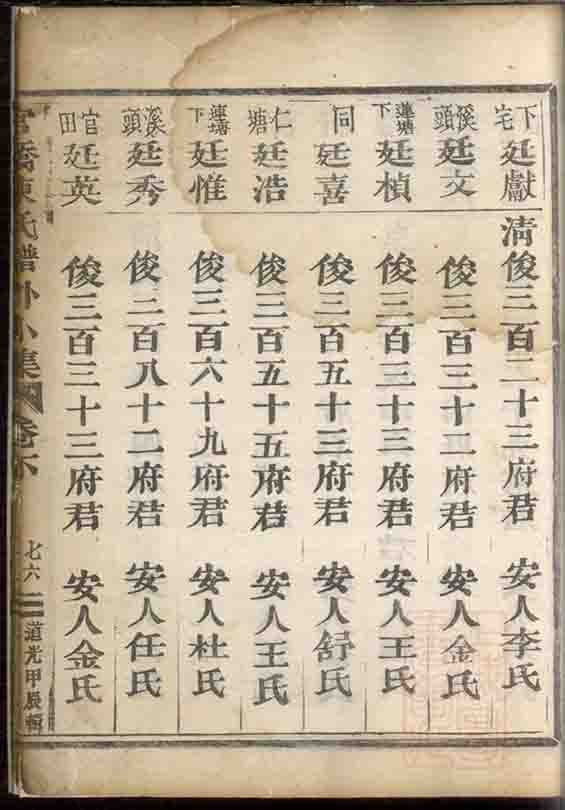 下宅 廷獻 清俊三百二十三府君 安人李氏
溪頭 廷文 俊三百三十二府君 安人金氏
蓮塘下 廷楨 俊三百三十三府君 安人王氏
同 廷喜 俊三百五十三府君 安人舒氏
仁塘 廷浩 俊三百五十五府君 安人王氏
蓮塘下 廷惟 俊三百六十九府君 安人杜氏
溪頭 廷秀 俊二百八十二府君 安人任氏
官田 廷英 俊三百三十三府君 安人金氏
橋東氏譜外小集 卷下 七六 道光甲辰輯